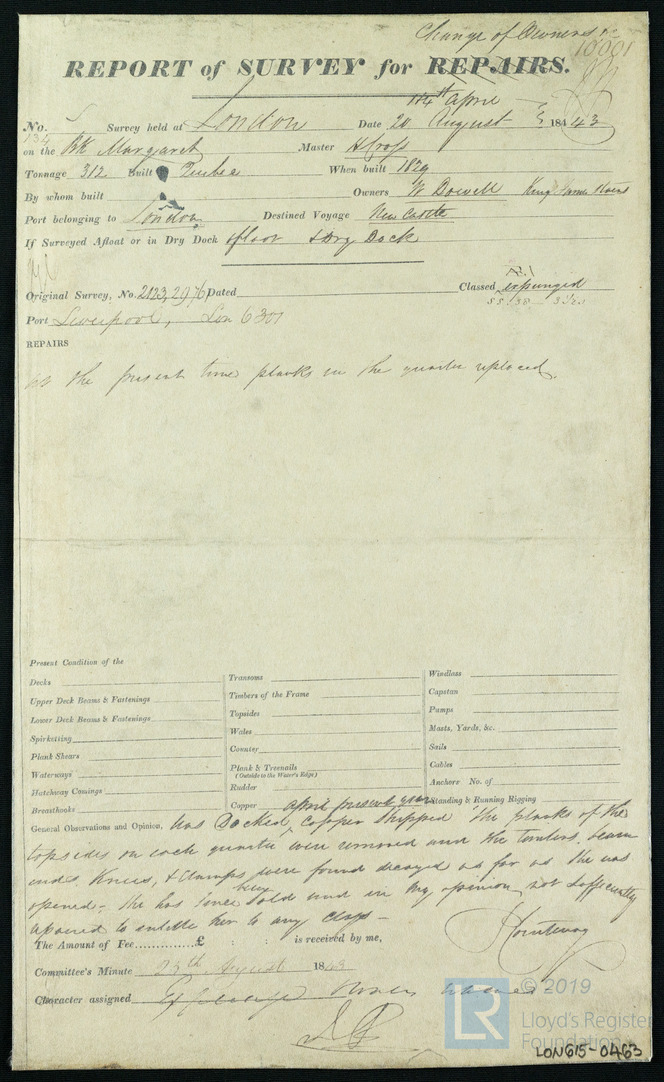 Change of Owners
10001
REPORT of SURVEY for REPAIRS.
14th April
No. 134 Survey held at London Date 20 August 1843
on the Bk Margaret Master H Gross
Tonnage 312 Built Quebec When built 1829
By whom built Owners W Dowell King James Stairs
Port belonging to London Destined Voyage New Castle
If Surveyed Afloat or in Dry Dock afloat & Dry Dock
A.1
Original Survey, No. 2123, 2976 Dated Classed expunged
Port Liverpool, Lon 6301
REPAIRS
at the present time planks in the quarter replaced.
Present Condition of the
Decks
Upper Deck Beams & Fastenings
Lower Deck Beams & Fastenings
Spirketting
Plank Shears
Waterways
Hatchway Comings
Breasthooks
Transoms
Timbers of the Frame
Topsides
Wales
Counter
Plank & Treenails
(Outside to the Water's Edge)
Rudder
Copper
Windlass
Capstan
Pumps
Masts, Yards, &c.
Sails
Cables
Anchors No. of
Standing & Running Rigging
april present year
General Observations and Opinion, has Docked, Copper Stripped The planks of the
topsides on each quarter were removed and the timbers, beam
ends, Knees, & Clamps were found decayed as far as she was
opened - She has since been Sold and in my opinion not sufficiently
to entitle her to any class -
The Amount of Fee £ : : is received by me,
Committee's Minute 25th August 1843
Character assigned
© 2019
LR
Lloyd's Register
Foundation
LON615-0463